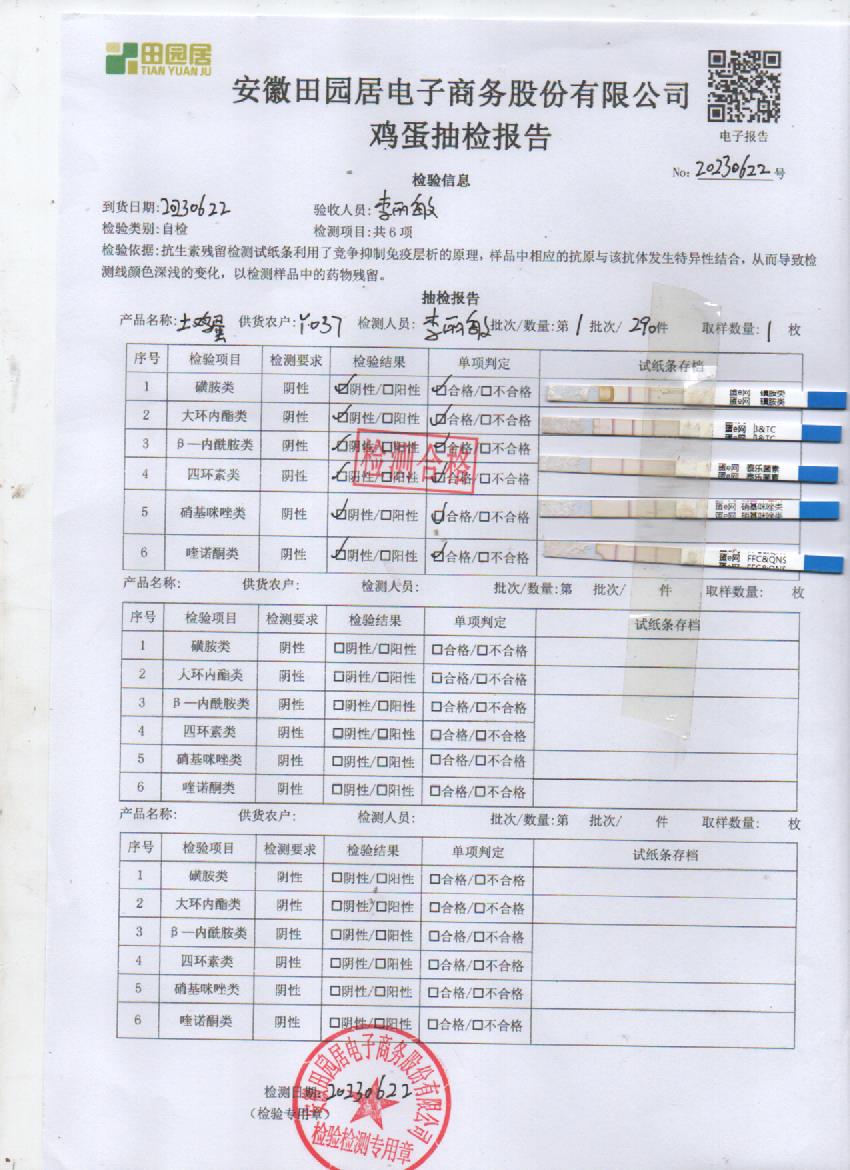 田园居
TIAN YUAN JU
安徽田园居电子商务股份有限公司
鸡蛋抽检报告
电子报告
No: 20230622 号
检验信息
到货日期: 20230622 验收人员: 李丽敏
检验类别: 自检 检测项目: 共6项
检验依据: 抗生素残留检测试纸条利用了竞争抑制免疫层析的原理，样品中相应的抗原与该抗体发生特异性结合，从而导致检
测线颜色深浅的变化，以检测样品中的药物残留。
抽检报告
产品名称: 土鸡蛋 供货农户: Y037 检测人员: 李丽敏 批次/数量: 第 1 批次/ 290 件 取样数量: 1 枚
序号 检验项目 检测要求 检验结果 单项判定 试纸条存档
1 磺胺类 阴性 ☑阴性/□阳性 ☑合格/□不合格 蛋e网 磺胺类
2 大环内酯类 阴性 ☑阴性/□阳性 ☑合格/□不合格 蛋e网 β&TC
3 β—内酰胺类 阴性 ☑阴性/□阳性 ☑合格/□不合格
4 四环素类 阴性 ☑阴性/□阳性 ☑合格/□不合格 蛋e网 泰乐菌素
检测合格
5 硝基咪唑类 阴性 ☑阴性/□阳性 ☑合格/□不合格 蛋e网 硝基咪唑类
6 喹诺酮类 阴性 ☑阴性/□阳性 ☑合格/□不合格 蛋e网 FFC&QNS
产品名称: 供货农户: 检测人员: 批次/数量: 第 批次/ 件 取样数量: 枚
序号 检验项目 检测要求 检验结果 单项判定 试纸条存档
1 磺胺类 阴性 □阴性/□阳性 □合格/□不合格
2 大环内酯类 阴性 □阴性/□阳性 □合格/□不合格
3 β—内酰胺类 阴性 □阴性/□阳性 □合格/□不合格
4 四环素类 阴性 □阴性/□阳性 □合格/□不合格
5 硝基咪唑类 阴性 □阴性/□阳性 □合格/□不合格
6 喹诺酮类 阴性 □阴性/□阳性 □合格/□不合格
产品名称: 供货农户: 检测人员: 批次/数量: 第 批次/ 件 取样数量: 枚
序号 检验项目 检测要求 检验结果 单项判定 试纸条存档
1 磺胺类 阴性 □阴性/□阳性 □合格/□不合格
2 大环内酯类 阴性 □阴性/□阳性 □合格/□不合格
3 β—内酰胺类 阴性 □阴性/□阳性 □合格/□不合格
4 四环素类 阴性 □阴性/□阳性 □合格/□不合格
5 硝基咪唑类 阴性 □阴性/□阳性 □合格/□不合格
6 喹诺酮类 阴性 □阴性/□阳性 □合格/□不合格
安徽田园居电子商务股份有限公司
检测日期: 20230622
（检验专用章）
检验检测专用章